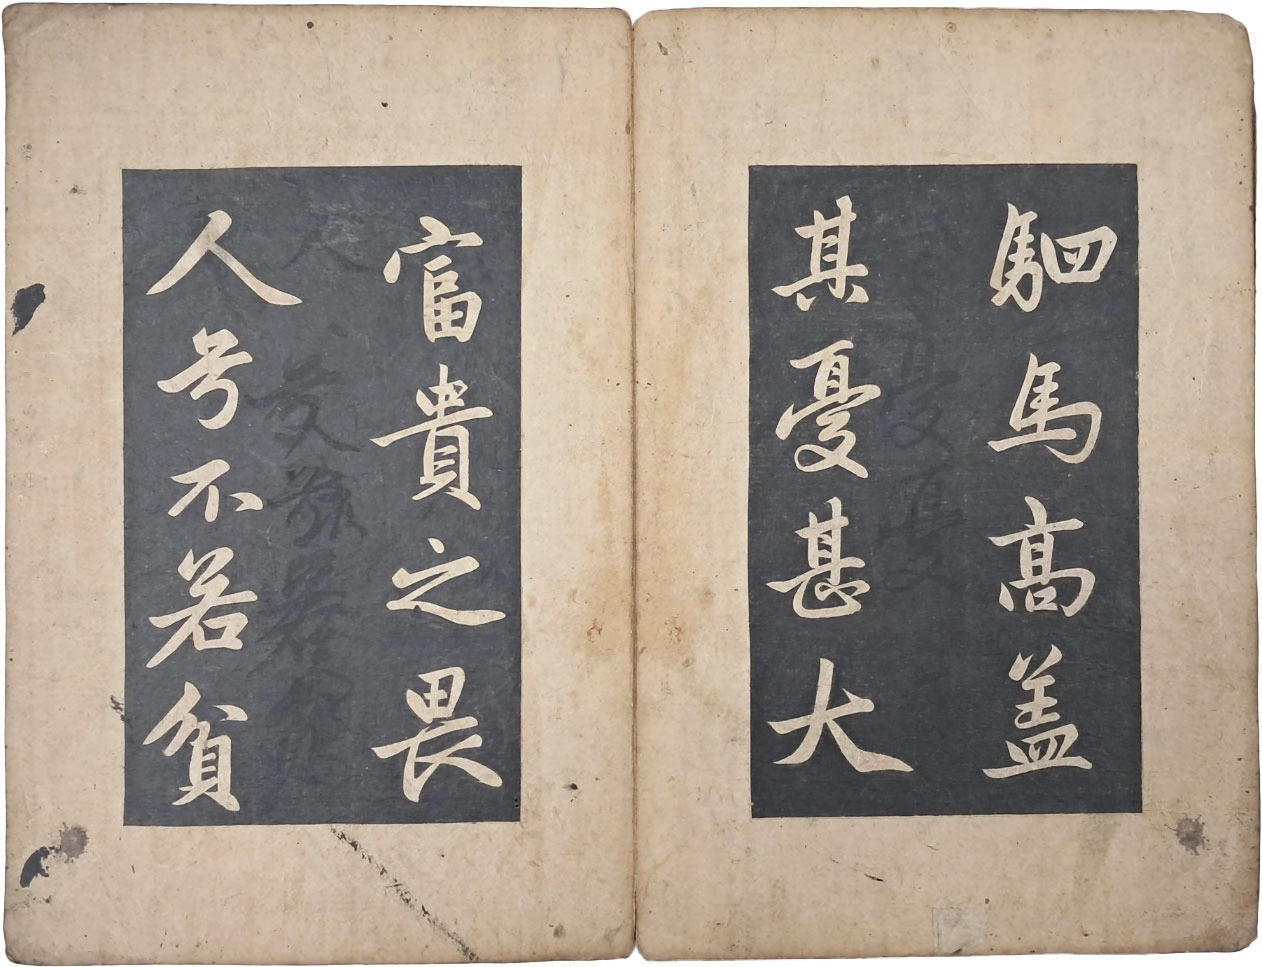 駟馬高盖
其憂甚大
富貴之畏
人兮不若貧